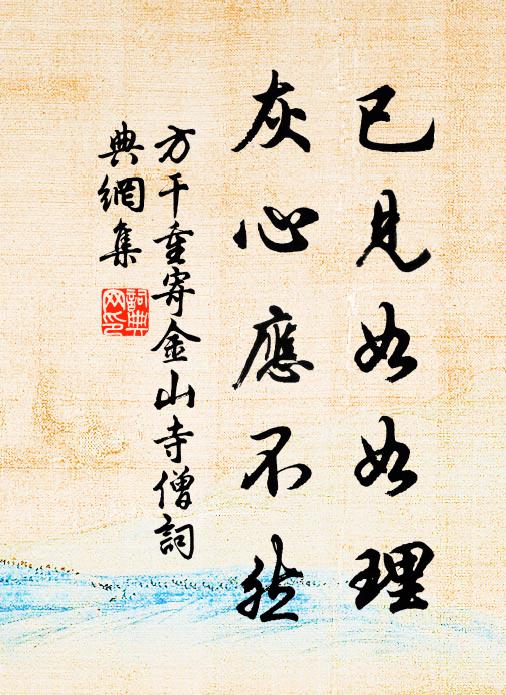 已見如如理
灰心應不然
方干重寄金山寺僧詞
典網集
詞典網印